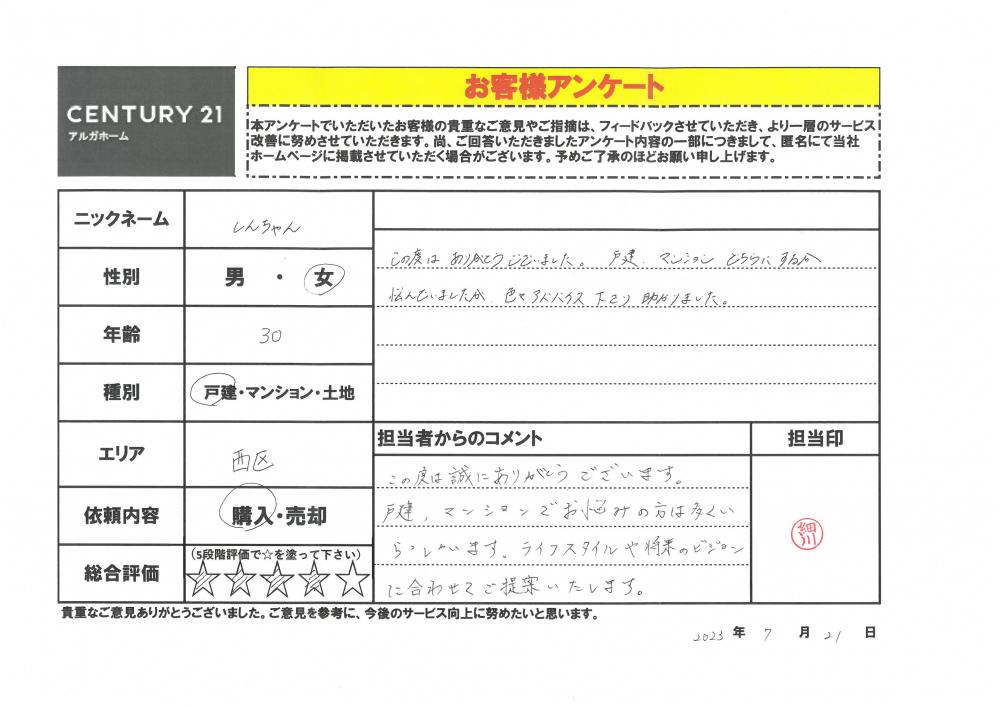 CENTURY 21
アルガホーム
お客様アンケート
本アンケートでいただいたお客様の貴重なご意見やご指摘は、フィードバックさせていただき、より一層のサービス
改善に努めさせていただきます。尚、ご回答いただきましたアンケート内容の一部につきまして、匿名にて当社
ホームページに掲載させていただく場合がございます。予めご了承のほどお願い申し上げます。
ニックネーム
しんちゃん
性別
男・女
年齢
30
種別
戸建・マンション・土地
エリア
西区
依頼内容
購入・売却
総合評価
(5段階評価で☆を塗って下さい)
この度は ありがとうございました。 戸建、マンション どちらに するか
悩んでいましたが、色々アドバイス 下さり 助かりました。
担当者からのコメント
担当印
この度は誠にありがとうございます。
戸建、マンションでお悩みの方は多くい
らっしゃいます。ライフスタイルや将来のビジョン
に合わせてご提案いたします。
細川
貴重なご意見ありがとうございました。ご意見を参考に、今後のサービス向上に努めたいと思います。
2023 年 7 月 21 日